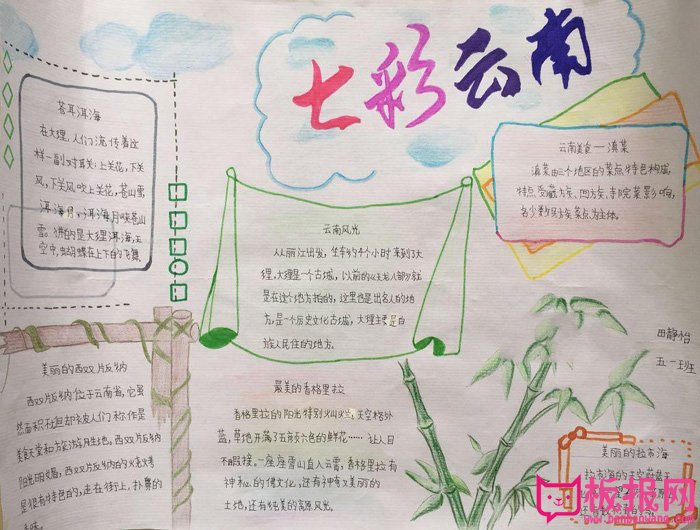 七彩云南
苍耳洱海
在大理,人们流传着这
样一副对联:上关花,下关
风,下关风吹上关花,苍山雪,
洱海月,洱海月映苍山
雪。
空中,蝴蝶在上下的飞舞
云南美食——滇菜
滇菜由三个地区的菜点特色构成,
特点受藏族、回族、寺院菜影响,
各少数民族菜点为主体。
云南风光
从丽江出发,坐车约4个小时来到了大
理,大理是一个古城,以前的《天龙八部》就
是在这个地方拍的,这里也是出名人的地
方,是一个历史文化古城,大理主要是白
族人民住的地方。
田静怡
五一班
美丽的西双片反纳
西双片反纳位于云南省,它虽
然面积不大但却被人们称作是
美食天堂和旅游胜地。西双片反纳
阳光明媚,西双片反纳的火烧烤
是很有特色的,走在街上,扑鼻的
香味。
最美的香格里拉
香格里拉的阳光特别灿烂,天空格外
蓝,草地开满了五颜六色的鲜花……让人目
不暇接。一座座雪山直入云霄,香格里拉有
神秘的佛文化,还有神奇又美丽的
土地,还有纯美的高原风光。
美丽的拉市海
拉市海的天空蔚蓝无
板报网